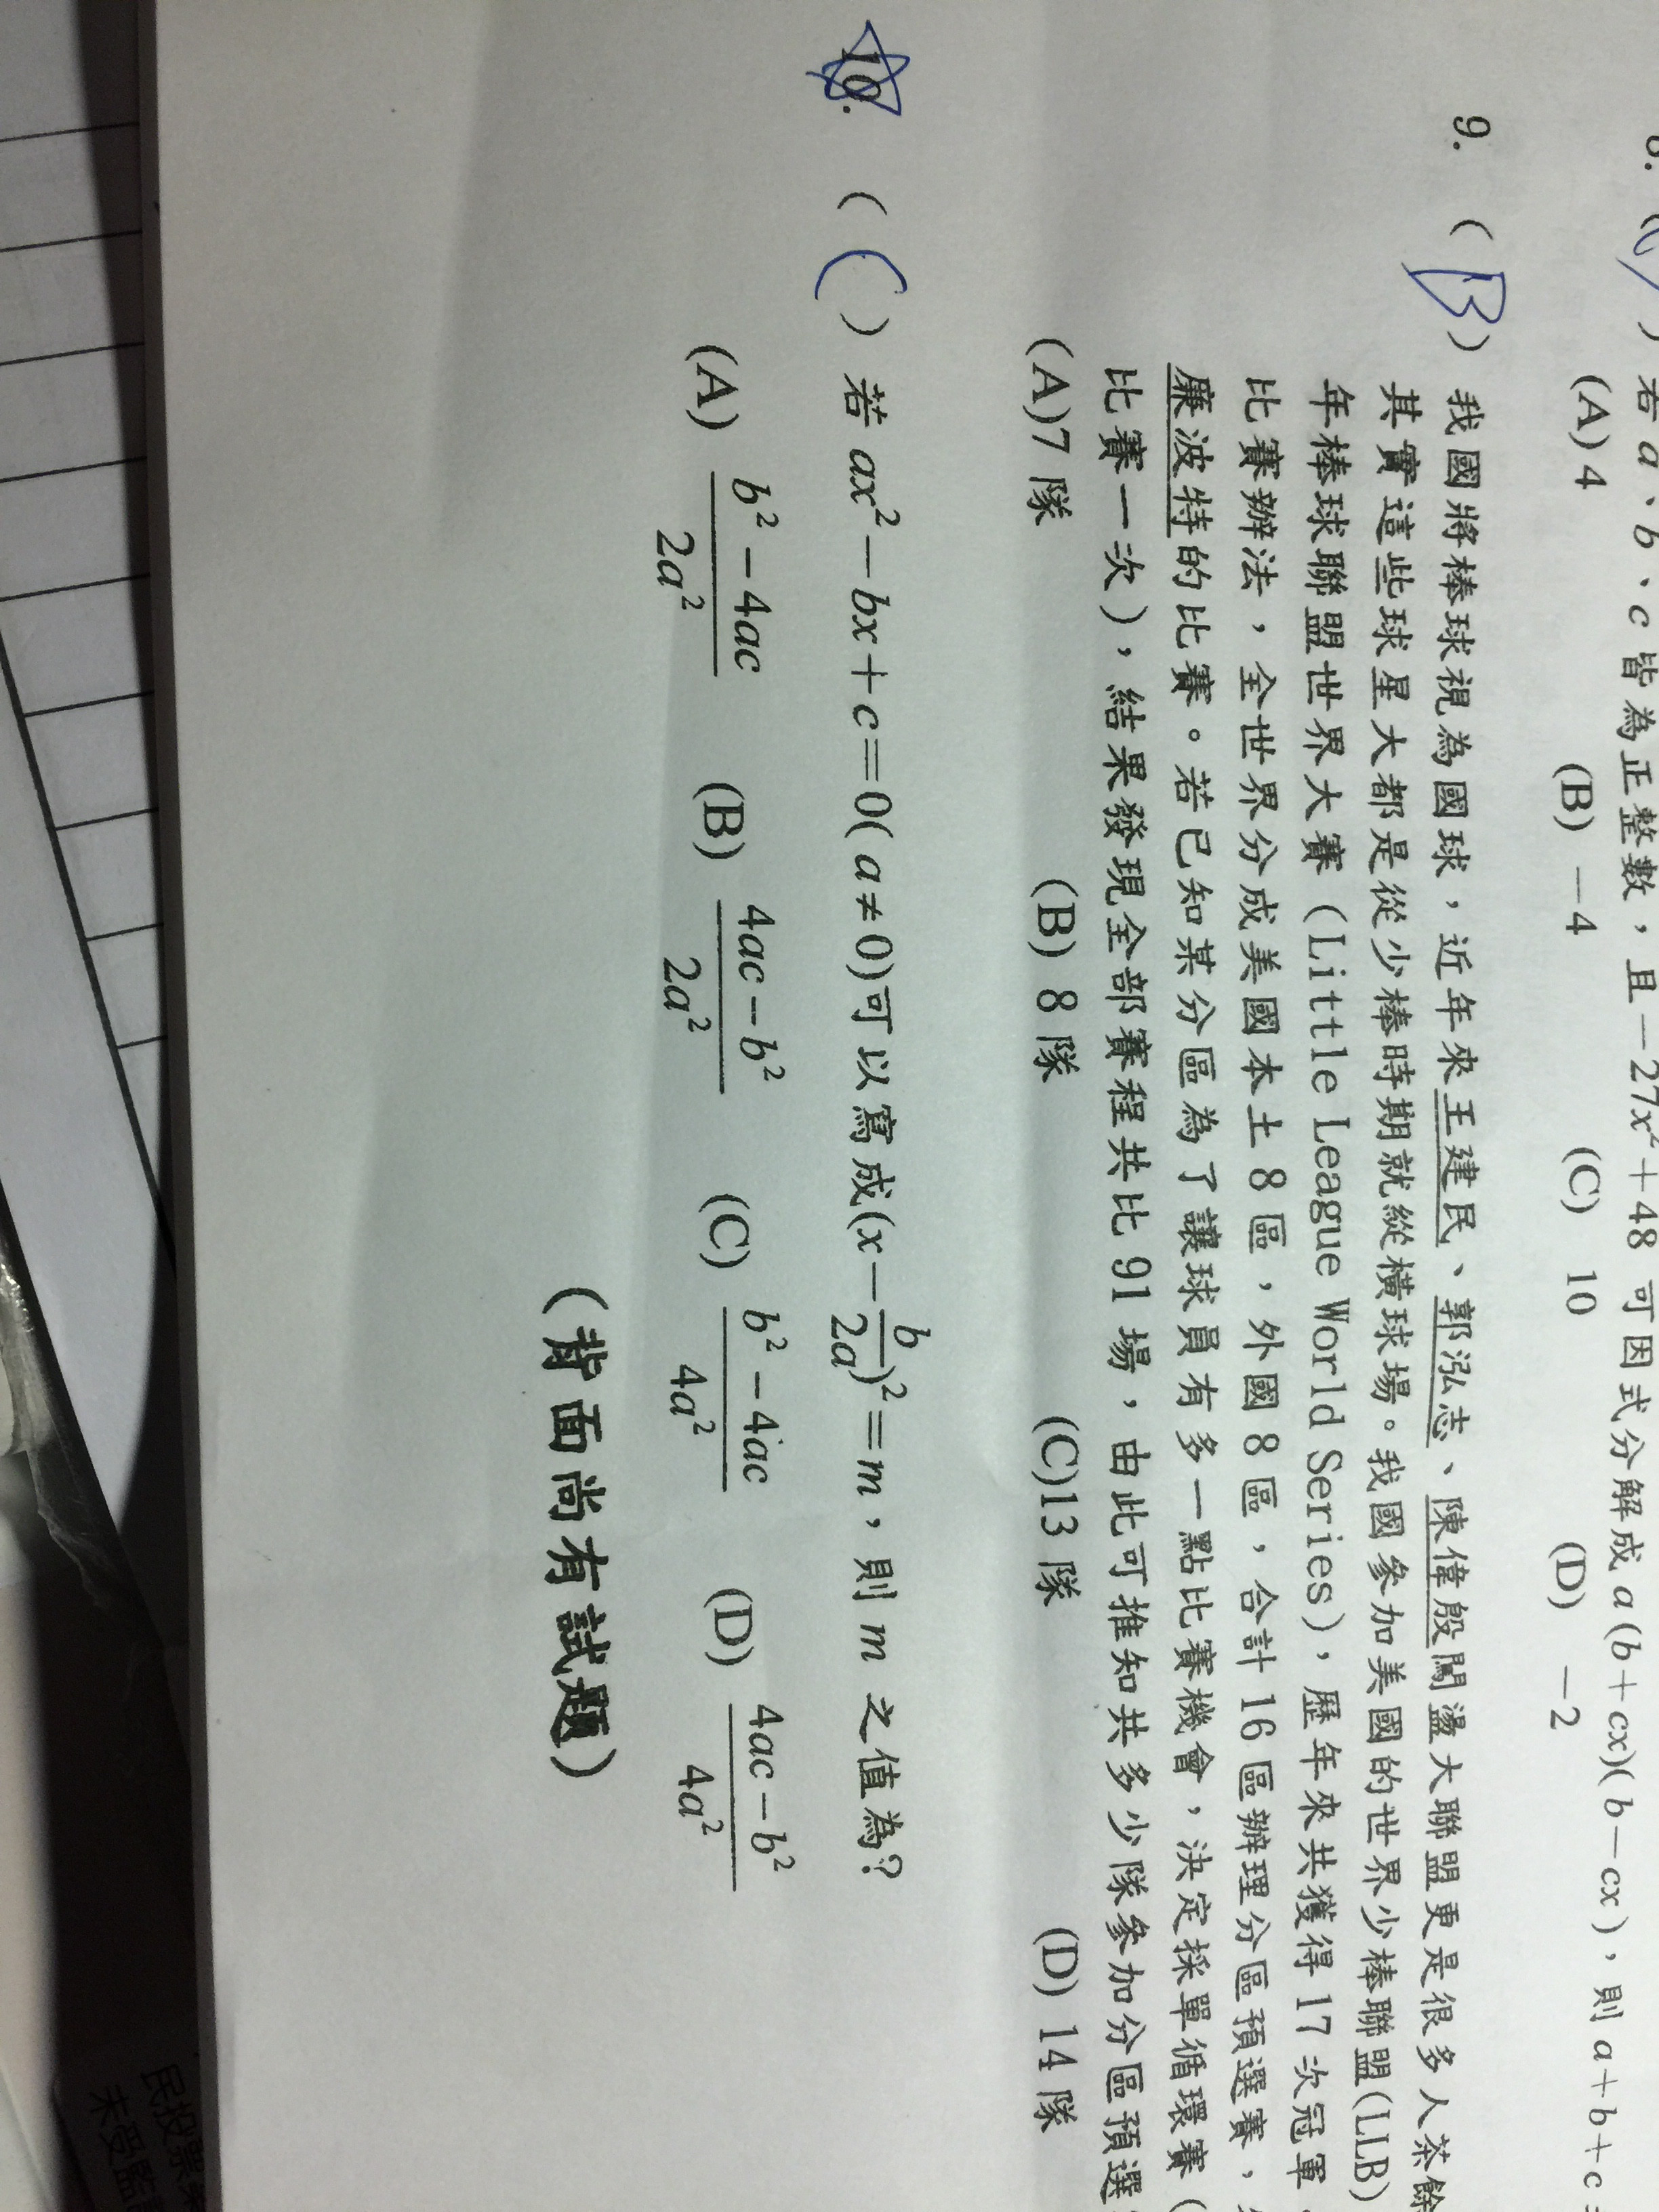 若 a、b、c 皆為正整數，且 −27x²＋48 可因式分解成 a(b＋cx)(b−cx)，則 a＋b＋c
(A) 4 (B) −4 (C) 10 (D) −2
9. ( B ) 我國將棒球視為國球，近年來王建民、郭泓志、陳偉殷闖盪大聯盟更是很多人茶餘
其實這些球星大都是從少棒時期就縱橫球場。我國參加美國的世界少棒聯盟(LLB)
年棒球聯盟世界大賽（Little League World Series），歷年來共獲得 17 次冠軍
比賽辦法，全世界分成美國本土 8 區，外國 8 區，合計 16 區辦理分區預選賽，
廉波特的比賽。若已知某分區為了讓球員有多一點比賽機會，決定採單循環賽（
比賽一次），結果發現全部賽程共比 91 場，由此可推知共多少隊參加分區預選
(A)7 隊 (B) 8 隊 (C)13 隊 (D) 14 隊
10. ( C ) 若 ax²−bx＋c＝0( a≠0)可以寫成(x−b/2a)²＝m，則 m 之值為？
(A) b²−4ac/2a² (B) 4ac−b²/2a² (C) b²−4ac/4a² (D) 4ac−b²/4a²
（背面尚有試題）
民投票案
未受監